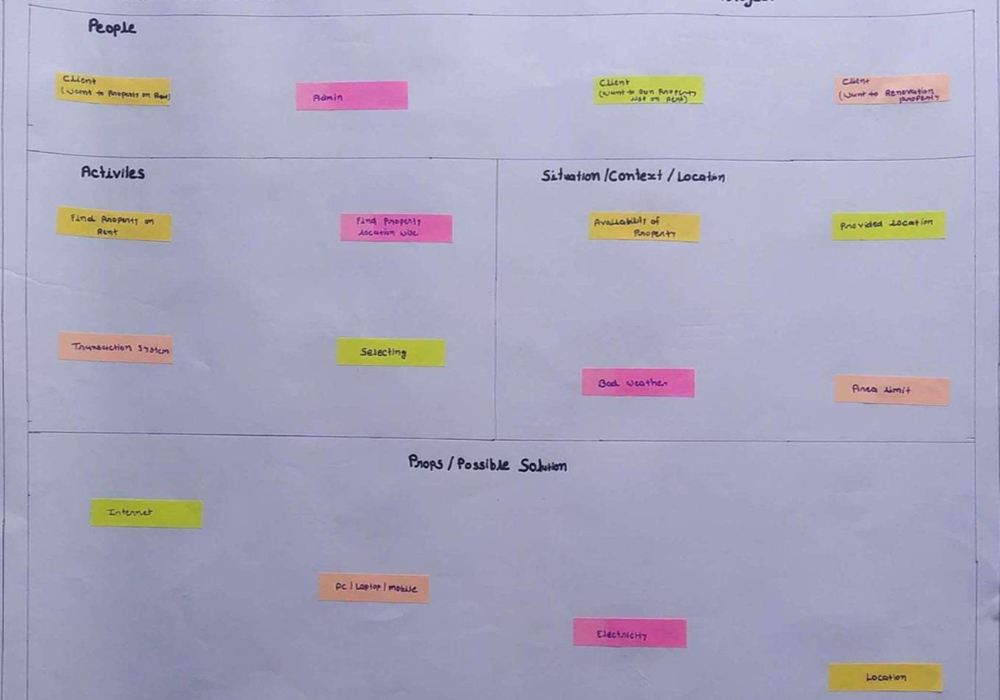 People
Client
(Want to Property on Rent)
Admin
Client
(Want to Own Property
Not on Rent)
Client
(Want to Renovation
Property
Activiles
Find Property on
Rent
Find Property
Location Wise
Transaction System
Selecting
Situation/Context/Location
Availability of
Property
Provided Location
Bad Weather
Area Limit
Props/Possible Solution
Internet
PC/Laptop/mobile
Electricity
Location